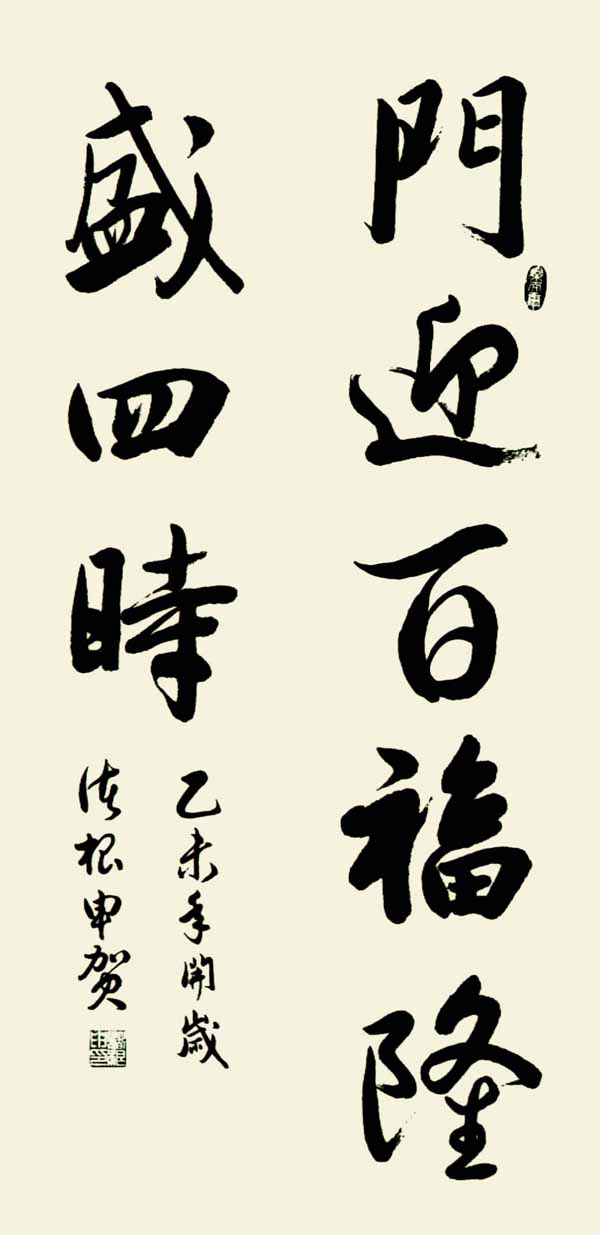 門迎百福隆
盛四時
乙未年開歲
根申贺